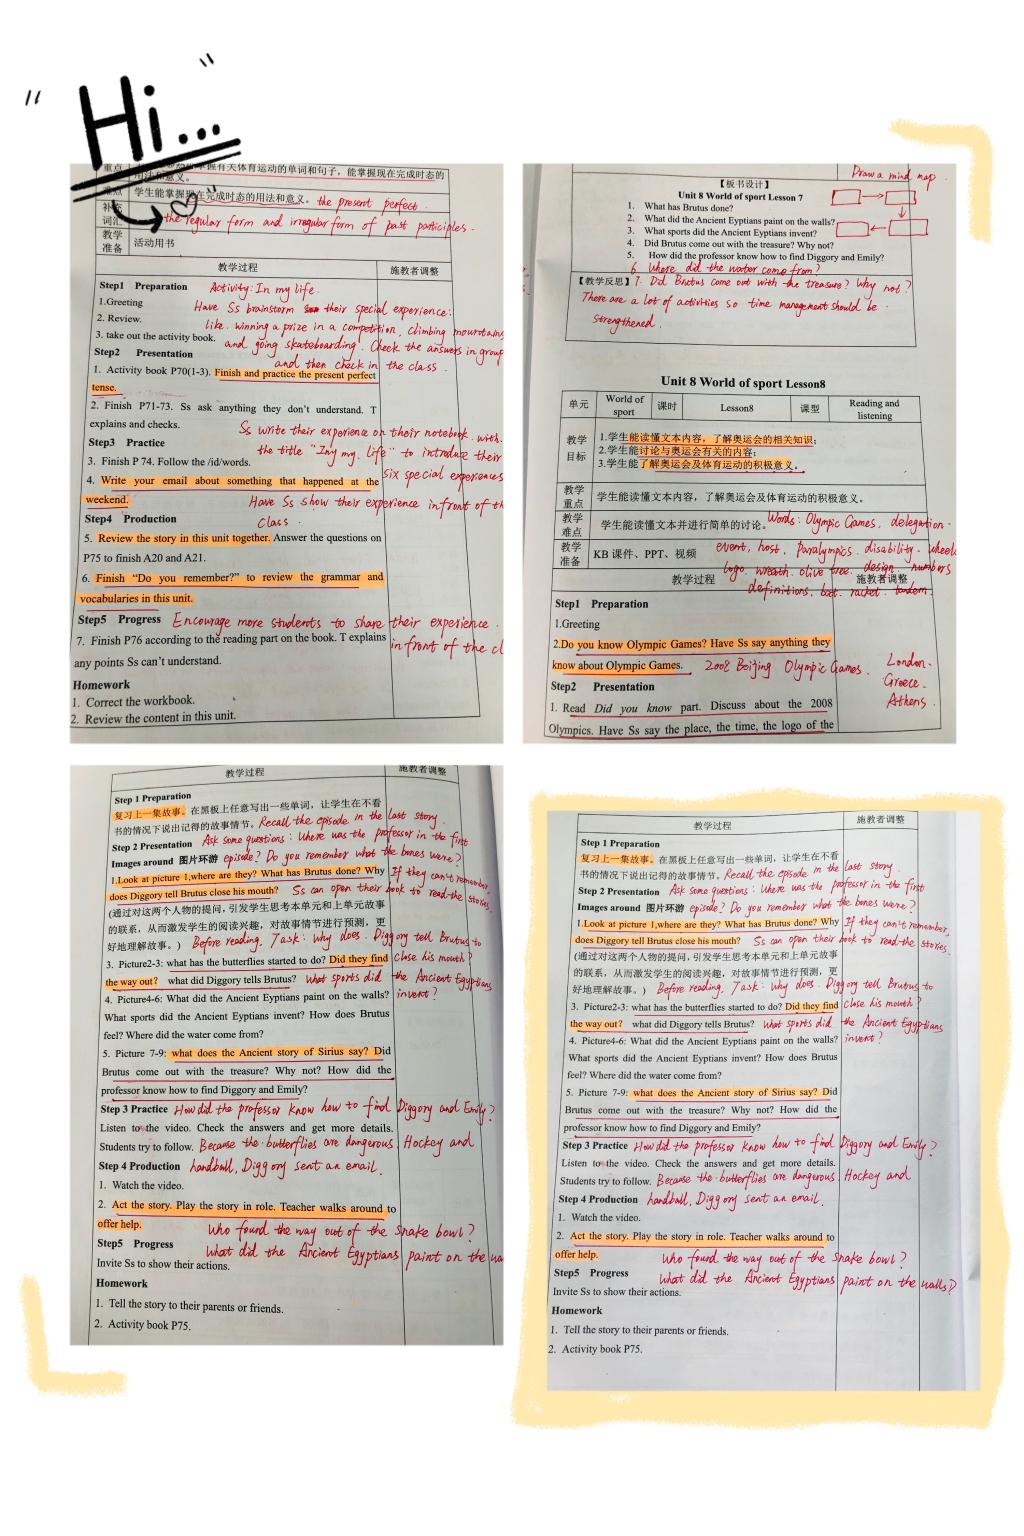 " Hi... "
重点
掌握有关体育运动的单词和句子，能掌握现在完成时态的
用法和意义。
难点
学生能掌握现在完成时态的用法和意义。 the present perfect.
补充
词汇
the regular form and irregular form of past participles.
教学
准备
活动用书
教学过程
施教者调整
Step1 Preparation Activity: In my life.
1.Greeting Have Ss brainstorm their special experience:
2. Review. like winning a prize in a competition, climbing mountains
3. take out the activity book. and going skateboarding. Check the answers in group
Step2 Presentation and then check in the class.
1. Activity book P70(1-3). Finish and practice the present perfect
tense.
2. Finish P71-73. Ss ask anything they don't understand. T
explains and checks. Ss write their experience on their notebook with
Step3 Practice the title "In my life" to introduce their
3. Finish P 74. Follow the /id/words. six special experiences
4. Write your email about something that happened at the
weekend. Have Ss show their experience infront of th
Step4 Production class.
5. Review the story in this unit together. Answer the questions on
P75 to finish A20 and A21.
6. Finish "Do you remember?" to review the grammar and
vocabularies in this unit.
Step5 Progress Encourage more students to share their experience.
7. Finish P76 according to the reading part on the book. T explains infront of the cl
any points Ss can't understand.
Homework
1. Correct the workbook.
2. Review the content in this unit.
Draw a mind map.
【板书设计】
Unit 8 World of sport Lesson 7
1. What has Brutus done?
2. What did the Ancient Eyptians paint on the walls?
3. What sports did the Ancient Eyptians invent?
4. Did Brutus come out with the treasure? Why not?
5. How did the professor know how to find Diggory and Emily?
6. Where did the water come from?
【教学反思】 7. Did Brutus come out with the treasure? Why not?
There are a lot of activities so time management should be
strengthened.
Unit 8 World of sport Lesson8
单元
World of
sport
课时
Lesson8
课型
Reading and
listening
教学
目标
1.学生能读懂文本内容，了解奥运会的相关知识；
2.学生能讨论与奥运会有关的内容；
3.学生能了解奥运会及体育运动的积极意义。
教学
重点
学生能读懂文本内容，了解奥运会及体育运动的积极意义。
教学
难点
学生能读懂文本并进行简单的讨论。 Words: Olympic Games, delegation.
教学
准备
KB 课件、PPT、视频 event, host, Paralympics. disability. wheel
logo. wreath. olive tree. design. numbers
教学过程
施教者调整
definitions, bat. racket. tandem
Step1 Preparation
1.Greeting
2.Do you know Olympic Games? Have Ss say anything they
know about Olympic Games. 2008 Beijing Olympic Games. London.
Greece.
Athens.
Step2 Presentation
1. Read Did you know part. Discuss about the 2008
Olympics. Have Ss say the place, the time, the logo of the
教学过程
施教者调整
Step 1 Preparation
复习上一集故事。在黑板上任意写出一些单词，让学生在不看
书的情况下说出记得的故事情节。 Recall the episode in the last story.
Step 2 Presentation Ask some questions: Where was the professor in the first
Images around 图片环游 episode? Do you remember what the bones were?
1.Look at picture 1,where are they? What has Brutus done? Why If they can't remember,
does Diggory tell Brutus close his mouth? Ss can open their book to read the stories.
(通过对这两个人物的提问，引发学生思考本单元和上单元故事
的联系，从而激发学生的阅读兴趣，对故事情节进行预测，更
好地理解故事。) Before reading. Task: Why does Diggory tell Brutus to
3. Picture2-3: what has the butterflies started to do? Did they find close his mouth?
the way out? what did Diggory tells Brutus? What sports did the Ancient Egyptians
4. Picture4-6: What did the Ancient Eyptians paint on the walls? invent?
What sports did the Ancient Eyptians invent? How does Brutus
feel? Where did the water come from?
5. Picture 7-9: what does the Ancient story of Sirius say? Did
Brutus come out with the treasure? Why not? How did the
professor know how to find Diggory and Emily?
Step 3 Practice How did the professor know how to find Diggory and Emily?
Listen to the video. Check the answers and get more details.
Students try to follow. Because the butterflies are dangerous. Hockey and
Step 4 Production handball, Diggory sent an email.
1. Watch the video.
2. Act the story. Play the story in role. Teacher walks around to
offer help. Who found the way out of the snake bowl?
Step5 Progress What did the Ancient Egyptians paint on the wa
Invite Ss to show their actions.
Homework
1. Tell the story to their parents or friends.
2. Activity book P75.
教学过程
施教者调整
Step 1 Preparation
复习上一集故事。在黑板上任意写出一些单词，让学生在不看
书的情况下说出记得的故事情节。 Recall the episode in the last story.
Step 2 Presentation Ask some questions: Where was the professor in the first
Images around 图片环游 episode? Do you remember what the bones were?
1.Look at picture 1,where are they? What has Brutus done? Why If they can't remember,
does Diggory tell Brutus close his mouth? Ss can open their book to read the stories.
(通过对这两个人物的提问，引发学生思考本单元和上单元故事
的联系，从而激发学生的阅读兴趣，对故事情节进行预测，更
好地理解故事。) Before reading. Task: Why does Diggory tell Brutus to
3. Picture2-3: what has the butterflies started to do? Did they find close his mouth?
the way out? what did Diggory tells Brutus? What sports did the Ancient Egyptians
4. Picture4-6: What did the Ancient Eyptians paint on the walls? invent?
What sports did the Ancient Eyptians invent? How does Brutus
feel? Where did the water come from?
5. Picture 7-9: what does the Ancient story of Sirius say? Did
Brutus come out with the treasure? Why not? How did the
professor know how to find Diggory and Emily?
Step 3 Practice How did the professor know how to find Diggory and Emily?
Listen to the video. Check the answers and get more details.
Students try to follow. Because the butterflies are dangerous. Hockey and
Step 4 Production handball, Diggory sent an email.
1. Watch the video.
2. Act the story. Play the story in role. Teacher walks around to
offer help. Who found the way out of the snake bowl?
Step5 Progress What did the Ancient Egyptians paint on the walls?
Invite Ss to show their actions.
Homework
1. Tell the story to their parents or friends.
2. Activity book P75.